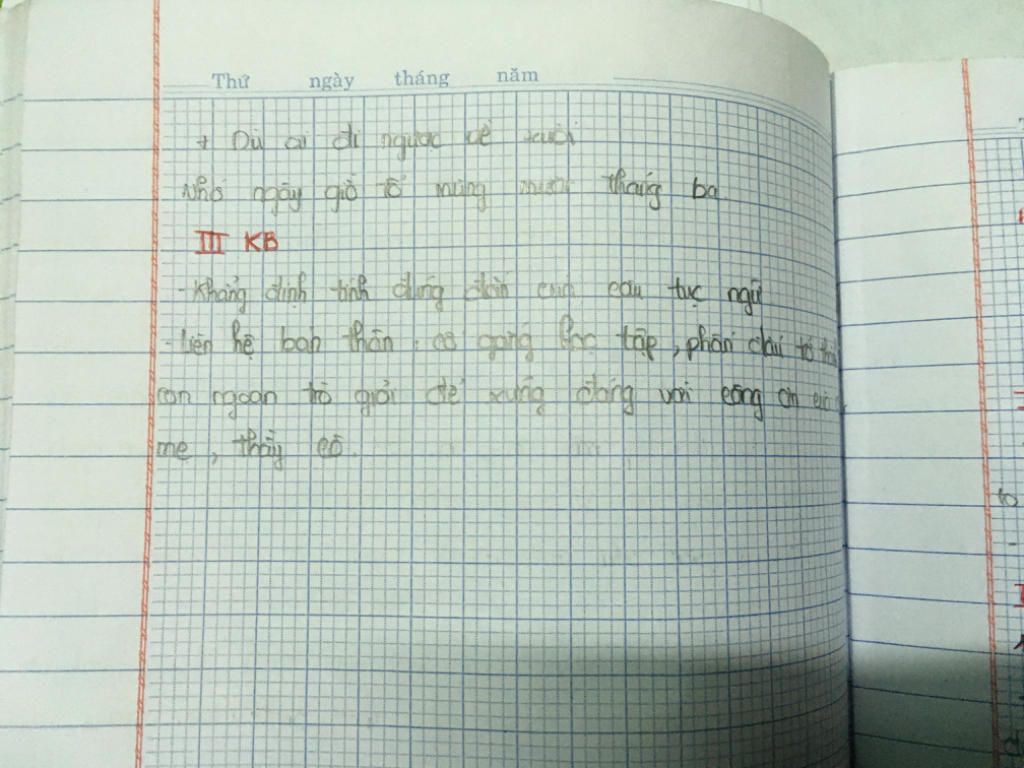 Thứ ngày tháng năm
+ Dù ai đi ngược về xuôi
Nhớ ngày giỗ tổ mùng mười tháng ba
III KB
- Khẳng định tính đúng đắn của câu tục ngữ
- Liên hệ bản thân: cố gắng học tập, phấn đấu trở thành
con ngoan trò giỏi để xứng đáng với công ơn của
mẹ, thầy cô.